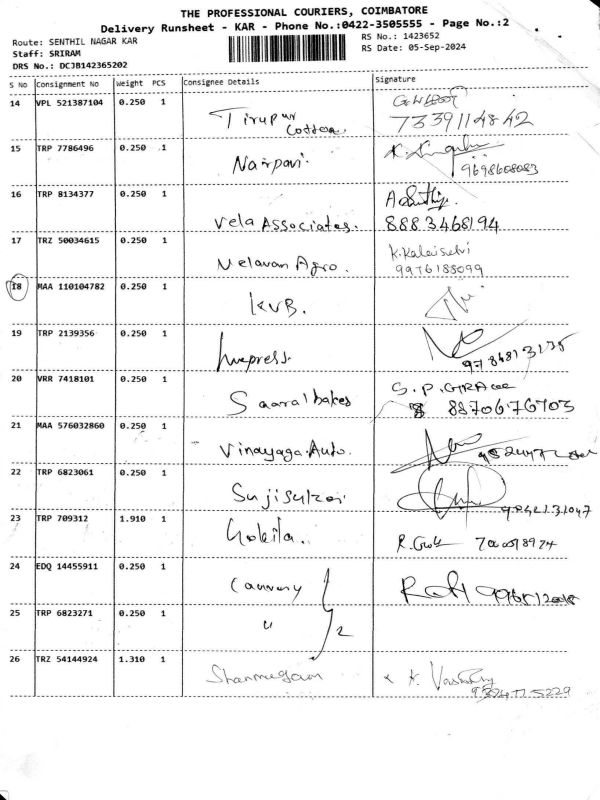 THE PROFESSIONAL COURIERS, COIMBATORE
Delivery Runsheet - KAR - Phone No.:0422-3505555 - Page No.:2
Route: SENTHIL NAGAR KAR RS No.: 1423652
Staff: SRIRAM RS Date: 05-Sep-2024
DRS No.: DCJB142365202
S No Consignment No Weight PCS Consignee Details Signature
14 VPL 521387104 0.250 1
Tirupur Cotton. 7339114842
15 TRP 7786496 0.250 1
Nairpavi. 9698608083
16 TRP 8134377 0.250 1
Vela Associates. 888 3468194
17 TRZ 50034615 0.250 1 K. Kalaiselvi
Velavan Agro. 9976188099
18 MAA 110104782 0.250 1
KVB.
19 TRP 2139356 0.250 1
20 VRR 7418101 0.250 1 S. P. GRACE
Saaral bakes 8870676703
21 MAA 576032860 0.250 1
Vinayaga Auto.
22 TRP 6823061 0.250 1
23 TRP 709312 1.910 1
24 EDQ 14455911 0.250 1
25 TRP 6823271 0.250 1
" 2
26 TRZ 54144924 1.310 1
Shanmugam